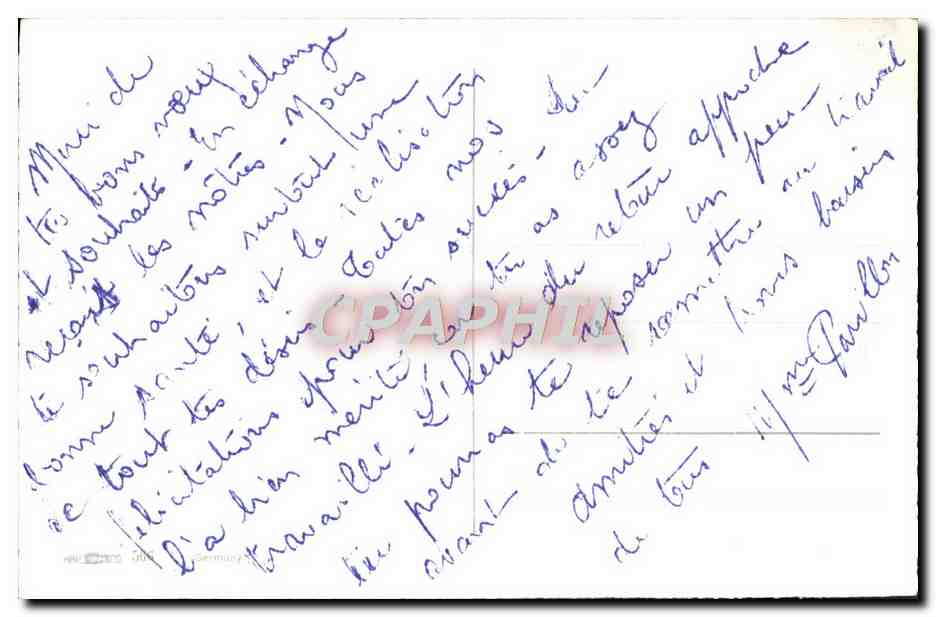 Merci de
tes bons vœux
et souhaits - En échange
reçois les nôtres - Nous
te souhaitons surtout une
bonne santé et la réalisation
de tout tes désirs. Toutes nos
félicitations pour ton succès -
l'a bien mérité car tu as assez
travaillé - L'heure du retour approche
tu pourras te reposer un peu -
avant de te remettre au travail
amitiés et bons baisers
de tous
CPAPHIL
Germany